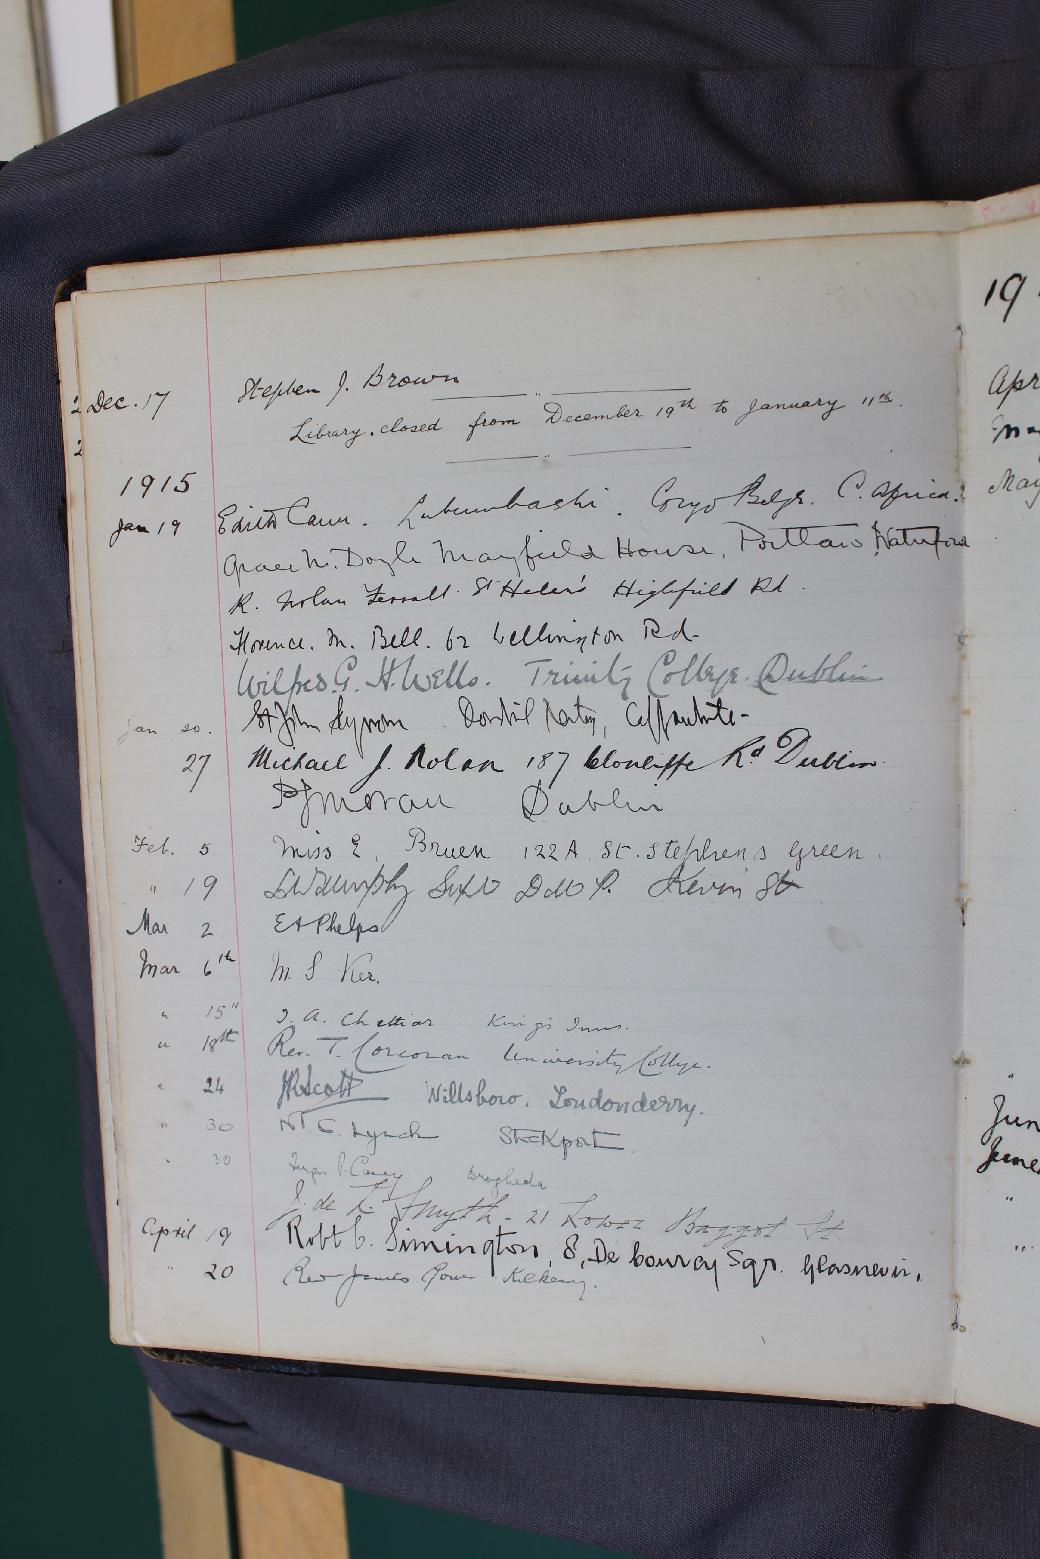 Dec. 17 Stephen J. Brown
Library closed from December 19th to January 11th.
1915
Jan 19 Edith Cann. Lubumbashi. Congo Belge. C. Africa.
Grace M. Doyle Mayfield House, Portlaw, Waterford
R. Nolan Ferrall. St Helen's Highfield Rd.
Florence. M. Bell. 62 Wellington Rd.
Wilfred G. H. Wells. Trinity College. Dublin
Jan 20. St John
27 Michael J. Nolan 187 Clonliffe Rd Dublin.
P J Moran Dublin
Feb. 5 Miss E. Bruen 122A St. Stephens Green.
" 19 Murphy Supt D M P. Kevin St
Mar 2 E A Phelps
Mar 6th M. S Ker.
" 15" I. A. Chettiar King's Inns.
" 18th Rev. T. Corcoran University College.
" 24 Scott Willsboro, Londonderry.
" 30 Lynch Stockport
" 30 Drogheda
J. de L. Smyth - 21 Lower Baggot St.
April 19 Robt C. Simington, 8, De Courcy Sqr. Glasnevin.
" 20 Rev James Power Kilkenny.
19
Apr
May
May
"
Jun
June
"
"